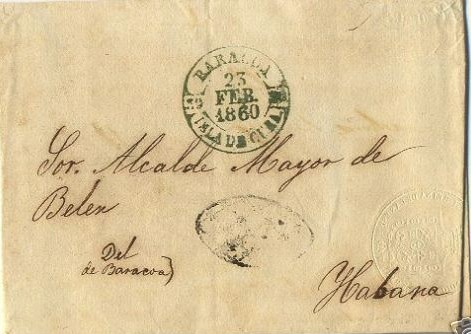 BARACOA
23
FEB.
1860
ISLA DE CUBA
Sor. Alcalde Mayor de
Belen
Del
de Baracoa)
Habana